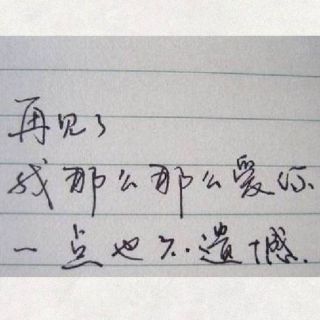 再见了
我那么那么爱你
一点也不遺憾.